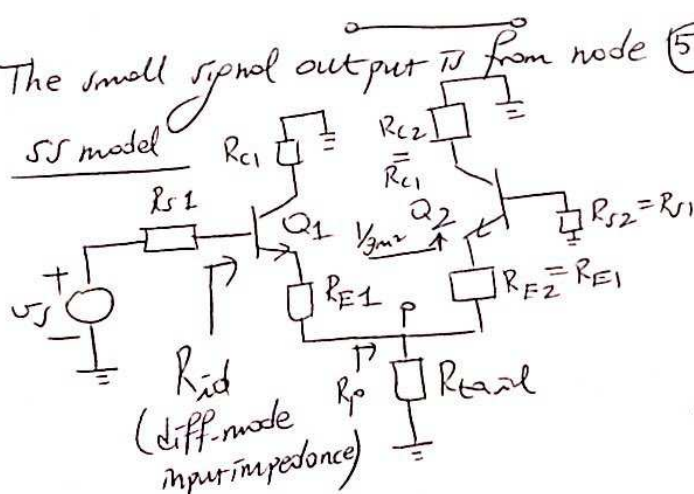 The small signal output is from node 5
SS model
RC1
RC2
=
RC1
RS1
Q1
Q2
1/gm2
RS2 = RS1
+
vs
−
RE1
RE2 = RE1
P
Rid
(diff-mode
input impedance)
Rp
Rtail